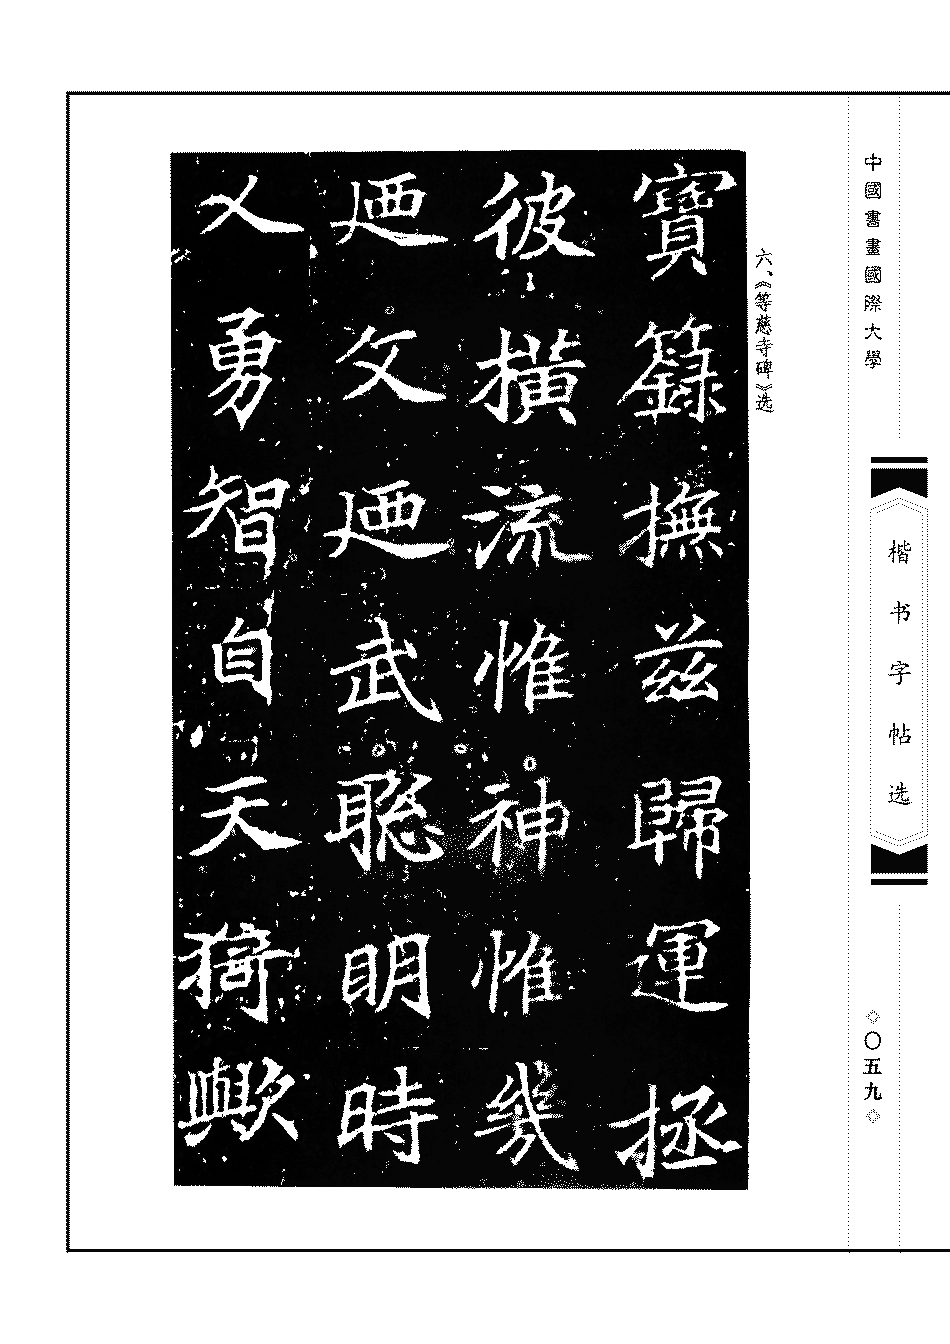 中國書畫國際大學
楷书字帖选
◇〇五九◇
六、《等慈寺碑》选
寶籙撫茲歸運拯
彼橫流惟神惟幾
迺文迺武聰明時
乂勇智自天猗歟